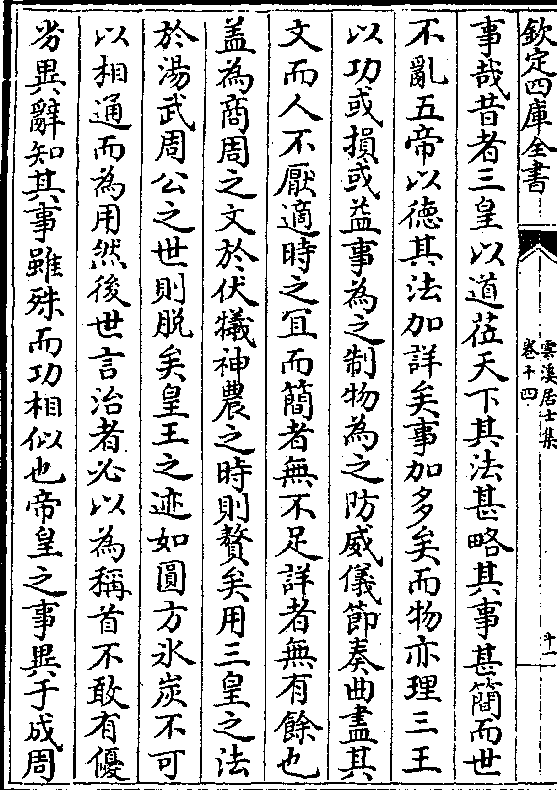 欽定四庫全書
雲溪居士集
卷十四
十一
事哉昔者三皇以道莅天下其法甚略其事甚簡而世
不亂五帝以德其法加詳矣事加多矣而物亦理三王
以功或損或益事為之制物為之防威儀節奏曲盡其
文而人不厭適時之宜而簡者無不足詳者無有餘也
盖為商周之文於伏犧神農之時則贅矣用三皇之法
於湯武周公之世則脱矣皇王之迹如圓方氷炭不可
以相通而為用然後世言治者必以為稱首不敢有優
劣異辭知其事雖殊而功相似也帝皇之事異于成周